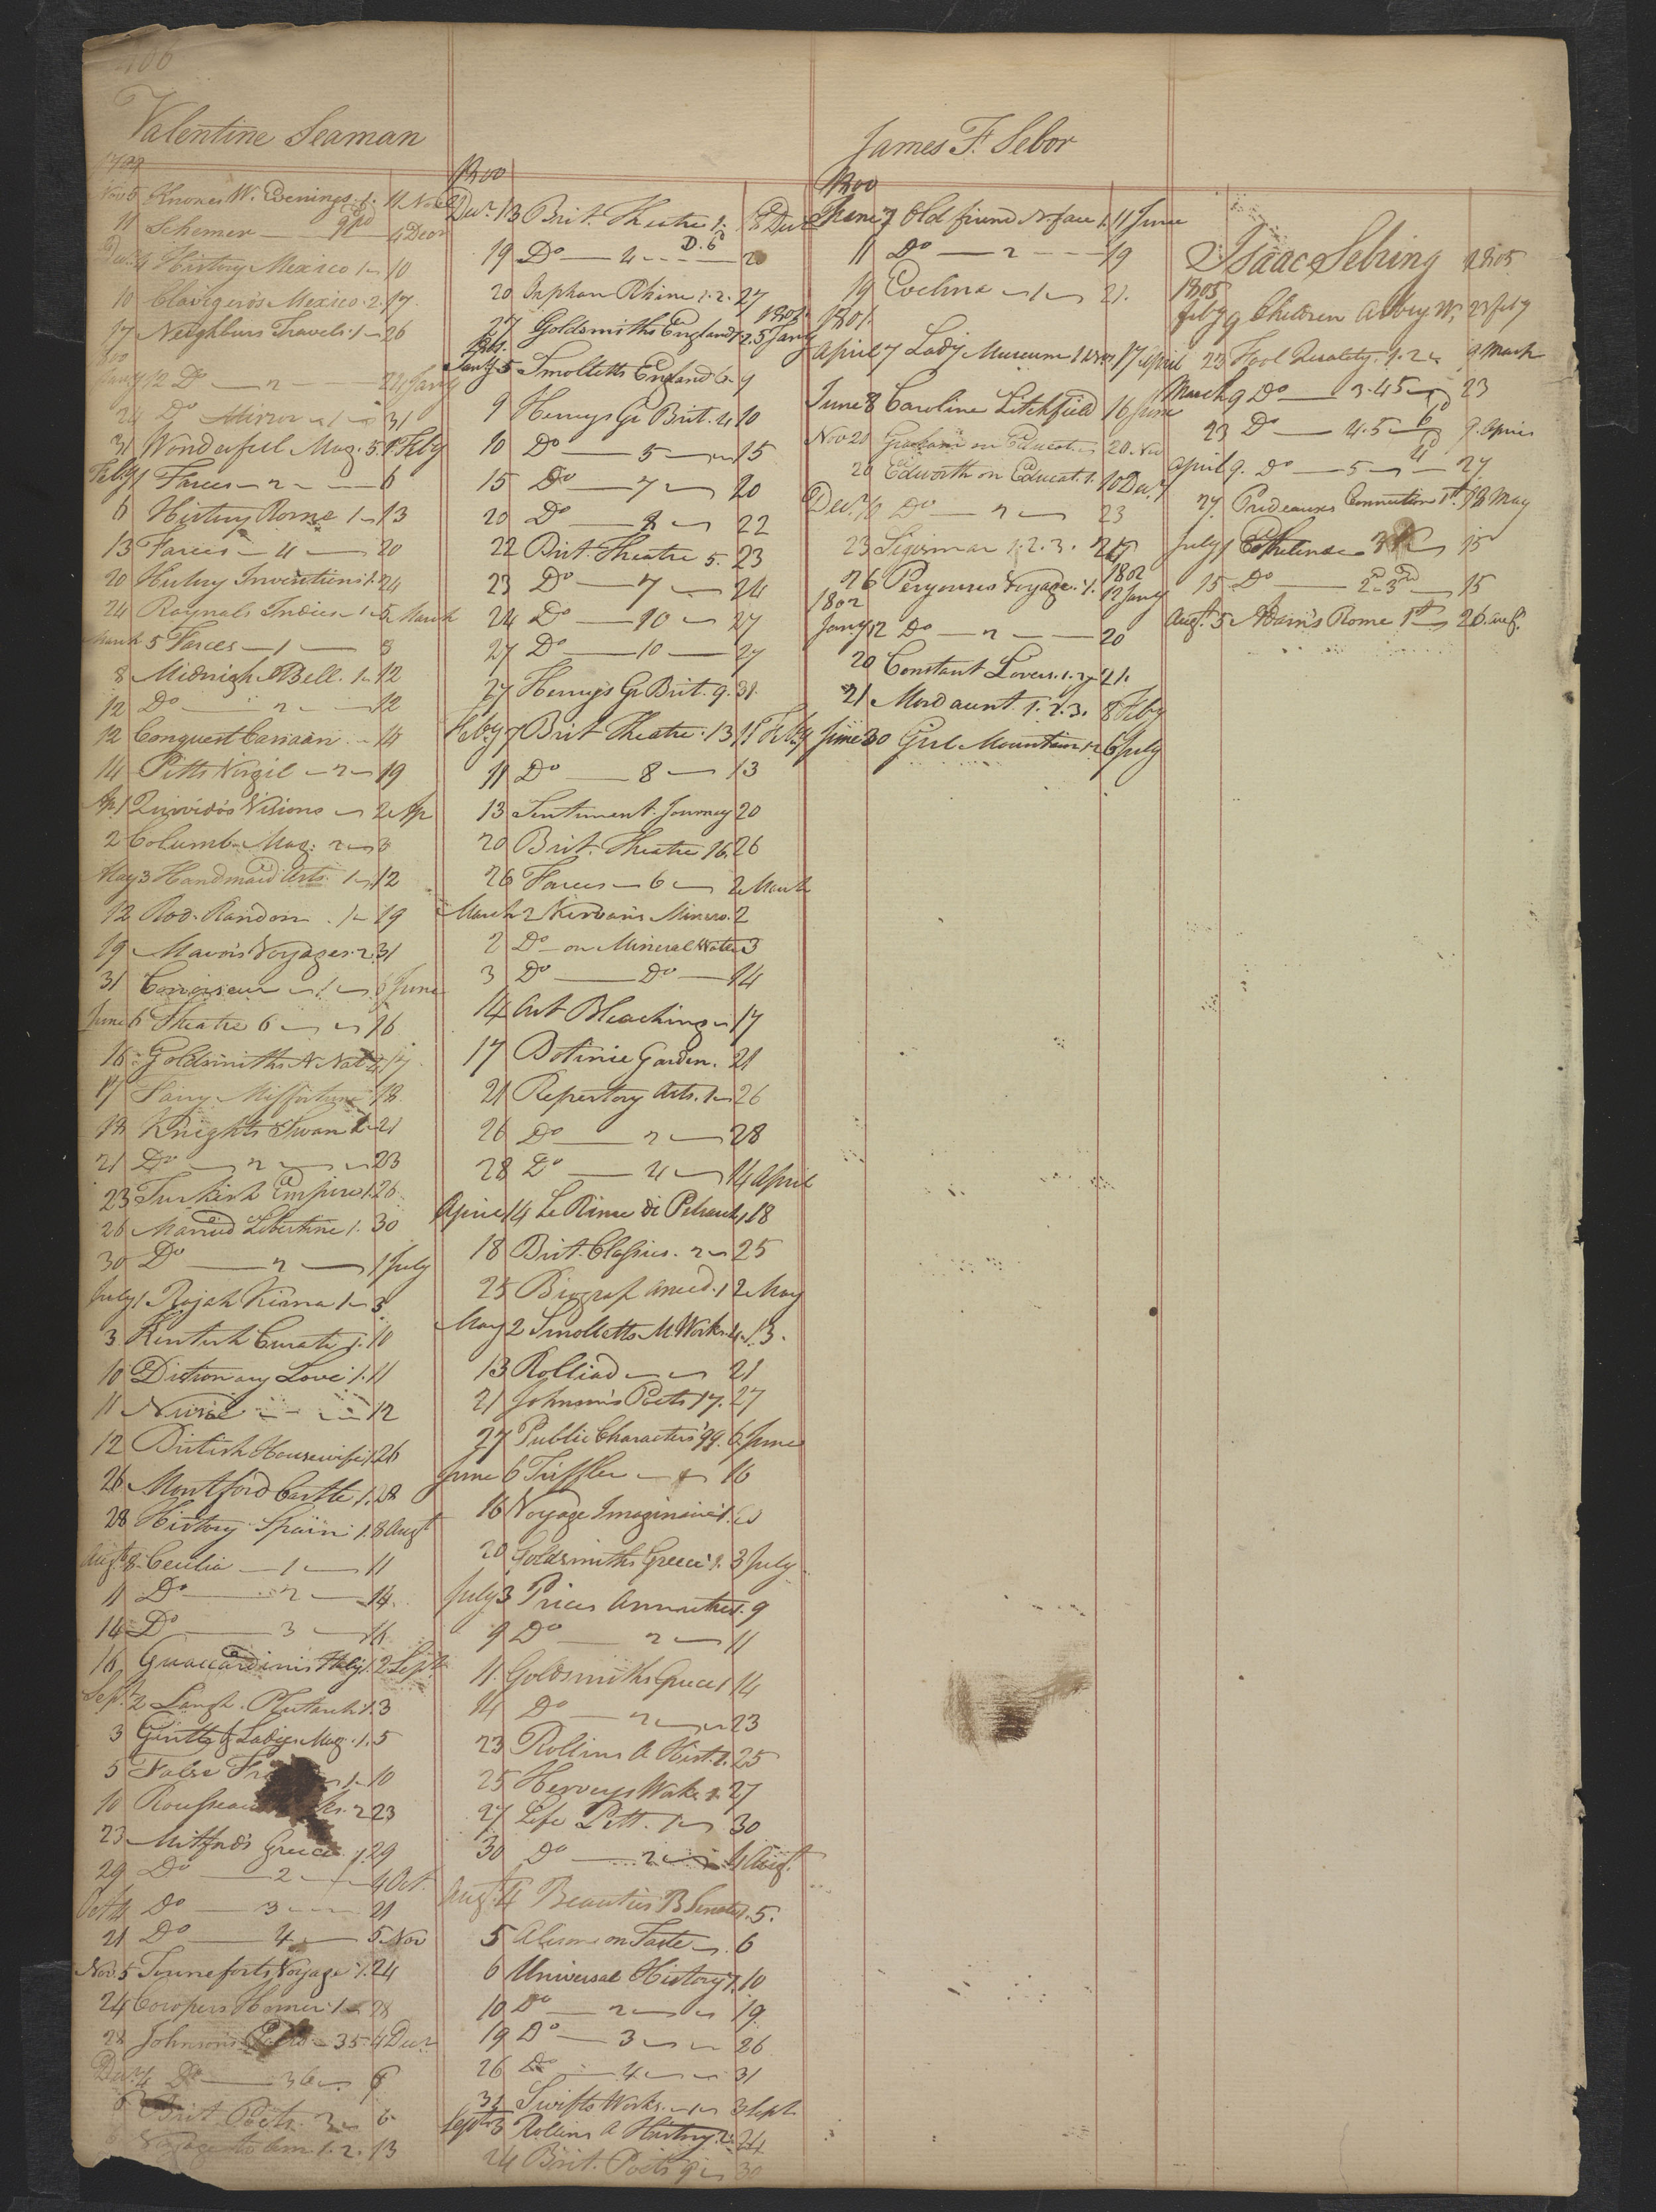 406
Valentine Seaman
1799
Nov 6 Knoxes W. Evenings. 1. 11 Nov
11 Schemer 4 Decr
Decr 4 History Mexico 1 10
10 Clavigero's Mexico. 2. 17.
17 Neighburs Travels. 1 26
Jany 12 Do 2 24 Jany
24 Do Mirror 1 31
31 Wonderful Mag. 5. 1 Feby
Feby 1 Farces 2 6
6 History Rome 1 13
13 Farces 4 20
20 History Inventions 1. 24
24 Raynals Indies 1 5 March
March 5 Farces 1 8
8 Midnight Bell. 1 12
12 Do 2 12
12 Conquest Canaan 14
14 Pitts Virgil 2 19
Ap. 1 Quividos Visions 2 Ap
2 Columb. Mag. 2 3
May 3 Handmaid Arts. 1 12
12 Rod. Random 1 19
19 Mavors Voyages. 2. 31
31 Conoiseur 1 6 June
June 6 Theatre 6 16
16 Goldsmiths N Nat 4 17
17 Fairy Misfortune 18
18 Knights Swan 1 21
21 Do 2 23
23 Turkish Empire 1. 26
26 Married Libertine 1. 30
30 Do 2 1 July
July 1 Rajah Kisna 1 3
3 Kentish Curate 1. 10
10 Dictionary Love 1. 11
11 Nurse 12
12 British Housewife 1. 26
26 Montford Castle 1. 28
28 History Spain 1. 8 Augt
Augt 8 Cecilia 1 11
11 Do 2 14
14 Do 3 16
16 Guaccardinis Italy 1. 2 Sept
Sept. 2 Langh. Plutarch 1. 3
3 Gentls & Ladies Mag. 1. 5
5 False 1 10
10 Rousseau 2 23
23 Mitfords Greece. 1. 29
29 Do 2 4 Oct.
Oct 4 Do 3 21
21 Do 4 5 Nov
Nov. 5 Tourneforts Voyage 1. 24
24 Cowpers Homer. 1 28
28 Johnsons 35. 4 Decr
Decr. 4 Do 36 6
6 Brit. Poets. 3 6
Voyage to 1. 2. 13
1800
Decr. 13 Brit. Theatre 1.
19 Do 4 D. 6d 20
20 Orphan Rhine 1. 2. 27
27 Goldsmiths England 1. 2. 5 Jany 1801.
1801.
Jany 5 Smolletts England 6. 9
9 Henrys Gr Brit. 4 10
10 Do 5 15
15 Do 7 20
20 Do 8 22
22 Brit. Theatre 5. 23
23 Do 7 24
24 Do 10 27
27 Do 10 27
27 Henrys Gr Brit. 9. 31.
Feby 7 Brit Theatre. 13 11 Feby
11 Do 8 13
13 Sentiment. Journey 20
20 Brit. Theatre 16. 26
26 Farces 6 2 March
March 2 Kirwans Minero. 2
2 Do on Mineral Water 3
3 Do Do 14
14 Art Bleaching 17
17 Botinic Garden. 21
21 Repertory Arts. 1 26
26 Do 2 28
28 Do 4 14 April
April 14 Le Rime di Petrarch 1 18
18 Brit. Classics. 2 25
25 Biograf Aneed. 1 2 May
May 2 Smolletts M. Works 4. 13.
13 Rolliad 21
21 Johnsons Poets 17. 27
27 Public Characters 99. 6 June
June 6 Triffler 16
16 Voyage Imaginaire 1. 20
20 Goldsmiths Greece 1. 3 July
July 3 Prices Annuities 1. 9
9 Do 2 11
11 Goldsmiths Greece 1 14
14 Do 2 23
23 Rollins A Hist. 1. 25
25 Herveys Works 2. 27
27 Life Pitt. 1 30
30 Do 2 4 Augt.
Augt. 4 Beauties B Senate 1. 5.
5 Alison on Taste 6
6 Universal History 1. 10
10 Do 2 19
19 Do 3 26
26 Do 4 31
31 Swifts Works. 1 3 Sept
Sept. 3 Rollins A History. 2 24
24 Brit. Poets 9 30
James F. Sebor
1800
June 7 Old friend N face 1. 11 June
11 Do 2 19
19 Evelina 1 21.
1801.
April 7 Lady Museum 1 17 April
June 8 Caroline Litchfield 16 June
Nov 20 Grahams on Educat. 20. Nov
20 Edworth on Educat. 1. 10 Decr.
Decr. 10 Do 2 23
23 Sigismar 1. 2. 3. 26
26 Peryouses Voyage. 1. 12 Jany 1802
1802
Jany 12 Do 2 20
20 Constant Lover. 1. 2 21.
21 Mordaunt. 1. 2. 3. 8 Feby
June 30 Girl Mountain 1. 2 6 July
Isaac Sebring 1805
1805
Feby 9 Children Abbey 23 Feby
23 Fool Quality. 1. 2 9 March
March 9 Do 3. 4. 5 23
23 Do 4. 5 9. April
April 9. Do 5 27
27 Prideauxs Connection 1st. 18 May
July 1 Ethelinde 15
15 Do 2d 3rd 15
Augt. 5 Adam's Rome 1st 26. Augt.